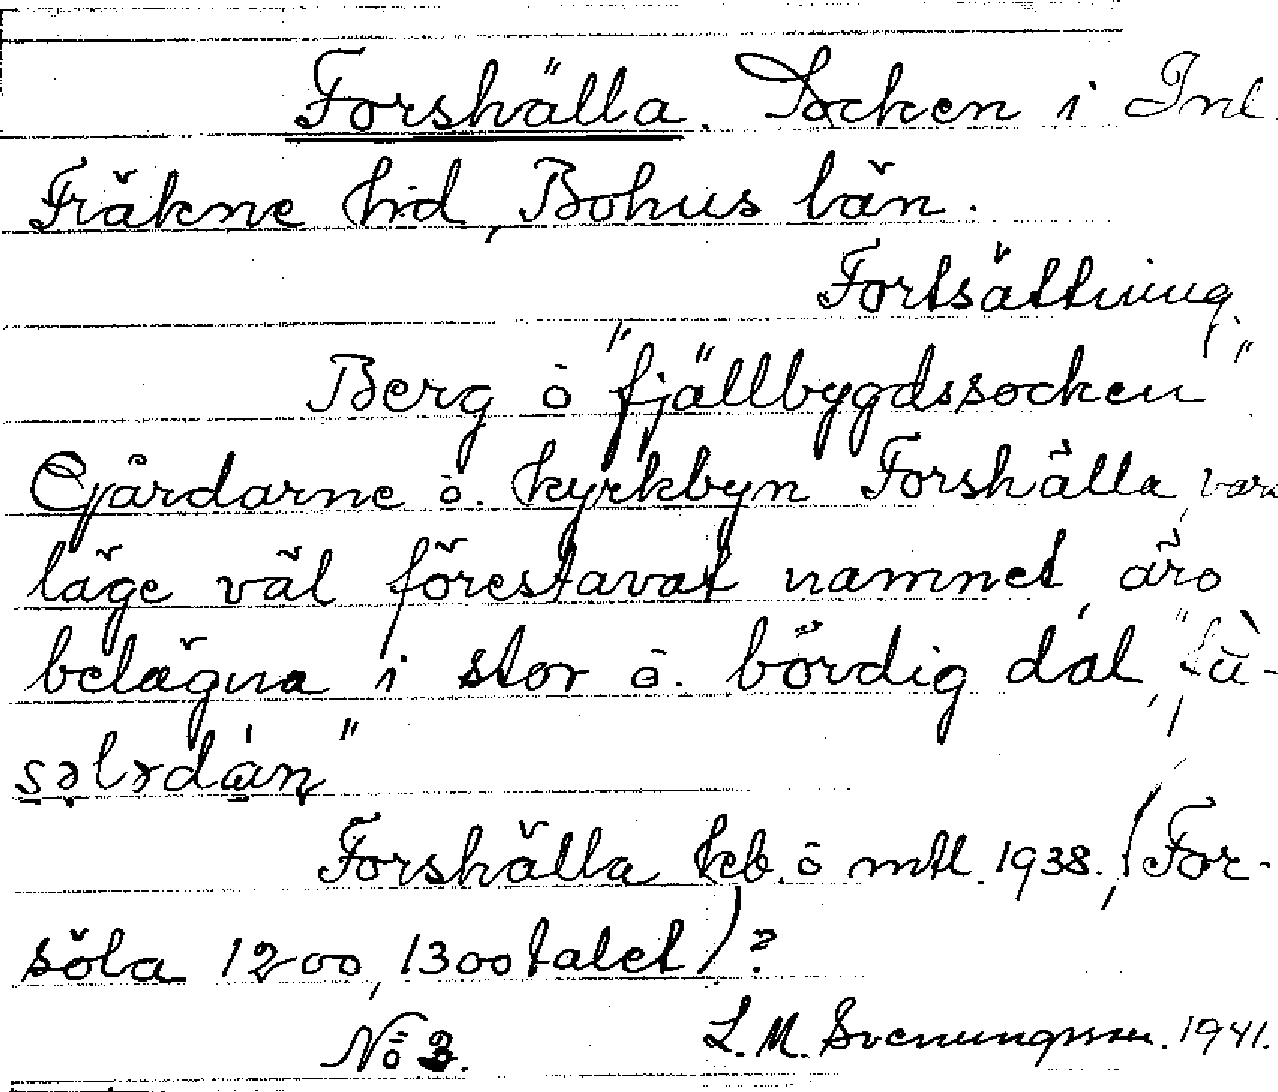 Forshälla. Socken i Inl.
Fräkne hrd, Bohus län.
Fortsättning.
Berg ö "fjällbygdssocken"
Gårdarne ö. kyrkbyn Forshälla, vars
läge väl förestavat namnet, äro
belägna i stor ö. bördig dal, "fù-
səlrdán"
Forshälla kb. ö mtl. 1938. (For-
söla 1200, 1300talet)?
No 3. L. M. Svenungsson. 1941.